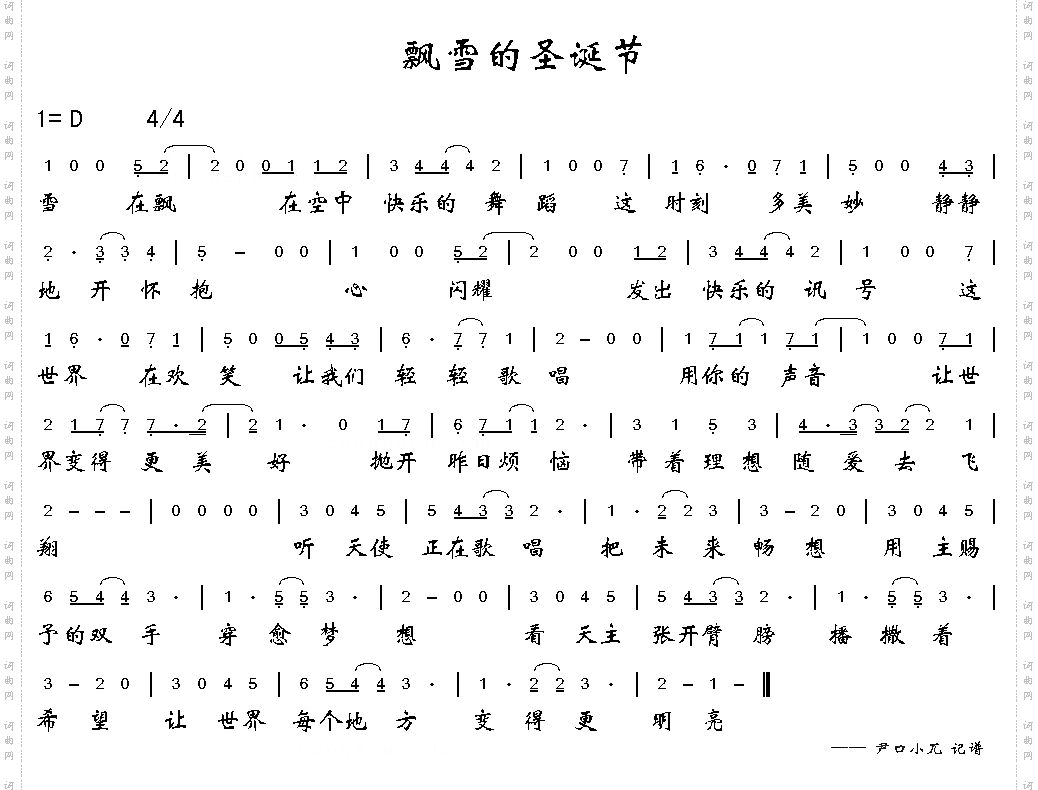 飘雪的圣诞节
1=D 4/4
1 0 0 5 2 | 2 0 0 1 1 2 | 3 4 4 4 2 | 1 0 0 7 | 1 6 · 0 7 1 | 5 0 0 4 3 |
雪 在飘 在空中 快乐的 舞 蹈 这 时刻 多美 妙 静静
2 · 3 3 4 | 5 – 0 0 | 1 0 0 5 2 | 2 0 0 1 2 | 3 4 4 4 2 | 1 0 0 7 |
地 开 怀 抱 心 闪耀 发出 快乐的 讯 号 这
1 6 · 0 7 1 | 5 0 0 5 4 3 | 6 · 7 7 1 | 2 – 0 0 | 1 7 1 1 7 1 | 1 0 0 7 1 |
世界 在欢 笑 让我们 轻 轻 歌 唱 用你的 声音 让世
2 1 7 7 7 · 2 | 2 1 · 0 1 7 | 6 7 1 1 2 · | 3 1 5 3 | 4 · 3 3 2 2 1 |
界变得 更 美 好 抛开 昨日烦 恼 带 着 理 想 随 爱 去 飞
2 – – – | 0 0 0 0 | 3 0 4 5 | 5 4 3 3 2 · | 1 · 2 2 3 | 3 – 2 0 | 3 0 4 5 |
翔 听 天使 正在歌 唱 把 未 来 畅 想 用 主赐
6 5 4 4 3 · | 1 · 5 5 3 · | 2 – 0 0 | 3 0 4 5 | 5 4 3 3 2 · | 1 · 5 5 3 · |
予的双 手 穿 愈 梦 想 看 天主 张开臂 膀 播 撒 着
3 – 2 0 | 3 0 4 5 | 6 5 4 4 3 · | 1 · 2 2 3 · | 2 – 1 – ‖
希 望 让 世界 每个地 方 变 得 更 明 亮
—— 尹口小兀 记谱